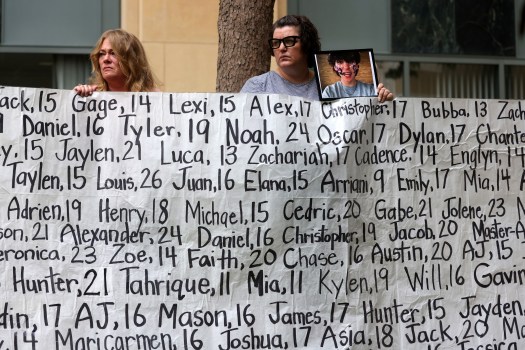 ack, 15 Gage, 14 Lexi, 15 Alex, 17 Christopher, 17 Bubba, 13 Zach
9 Daniel, 16 Tyler, 19 Noah, 24 Oscar, 17 Dylan, 17 Chante
ey, 15 Jaylen, 21 Luca, 13 Zachariah, 17 Cadence, 14 Englyn, 14
Taylen, 15 Louis, 26 Juan, 16 Elana, 15 Arriani, 9 Emily, 17 Mia, 14 A
Adrien, 19 Henry, 18 Michael, 15 Cedric, 20 Gabe, 21 Jolene, 23
son, 21 Alexander, 24 Daniel, 16 Christopher, 19 Jacob, 20 Master-A
eronica, 23 Zoe, 14 Faith, 20 Chase, 16 Austin, 20 AJ, 16
Hunter, 21 Tahrique, 11 Mia, 11 Kylen, 19 Will, 16 Gavin
din, 17 AJ, 16 Mason, 16 James, 17 Hunter, 15 Jayden,
y, 14 Mari Carmen, 16 Joshua, 17 Asia, 18 Jack, 20 M
Jessica